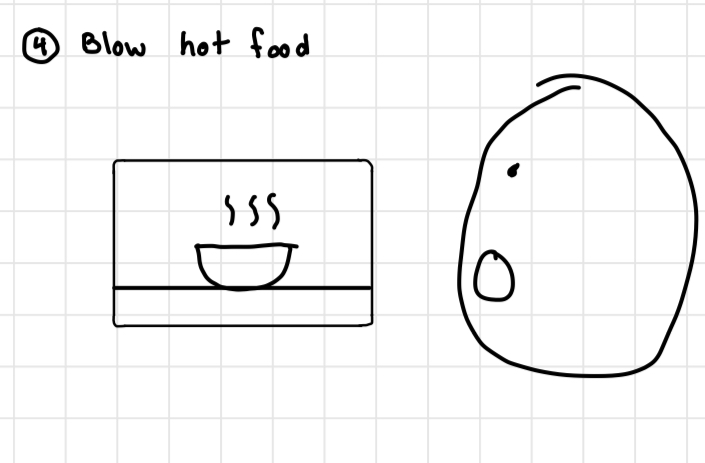 ④ Blow hot food